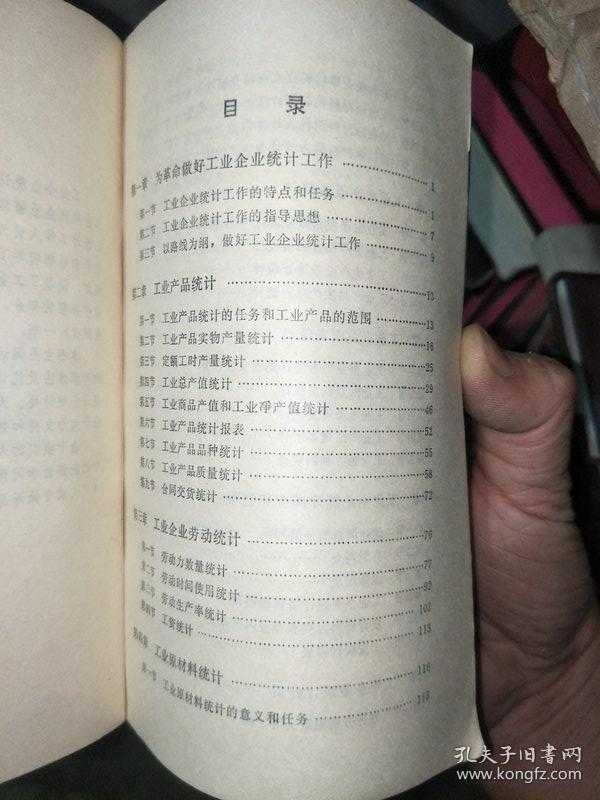 目 录
第一章 为革命做好工业企业统计工作 ……………… 1
第一节 工业企业统计工作的特点和任务 ……………… 1
第二节 工业企业统计工作的指导思想 ……………… 7
第三节 以路线为纲，做好工业企业统计工作 ……………… 9
第二章 工业产品统计 ……………… 13
第一节 工业产品统计的任务和工业产品的范围 ……………… 13
第二节 工业产品实物产量统计 ……………… 16
第三节 定额工时产量统计 ……………… 25
第四节 工业总产值统计 ……………… 29
第五节 工业商品产值和工业净产值统计 ……………… 46
第六节 工业产品统计报表 ……………… 52
第七节 工业产品品种统计 ……………… 55
第八节 工业产品质量统计 ……………… 58
第九节 合同交货统计 ……………… 72
第三章 工业企业劳动统计 ……………… 76
第一节 劳动力数量统计 ……………… 77
第二节 劳动时间使用统计 ……………… 92
第三节 劳动生产率统计 ……………… 102
第四节 工资统计 ……………… 113
第四章 工业原材料统计 ……………… 116
第一节 工业原材料统计的意义和任务 ……………… 116
孔夫子旧书网
www.kongfz.com